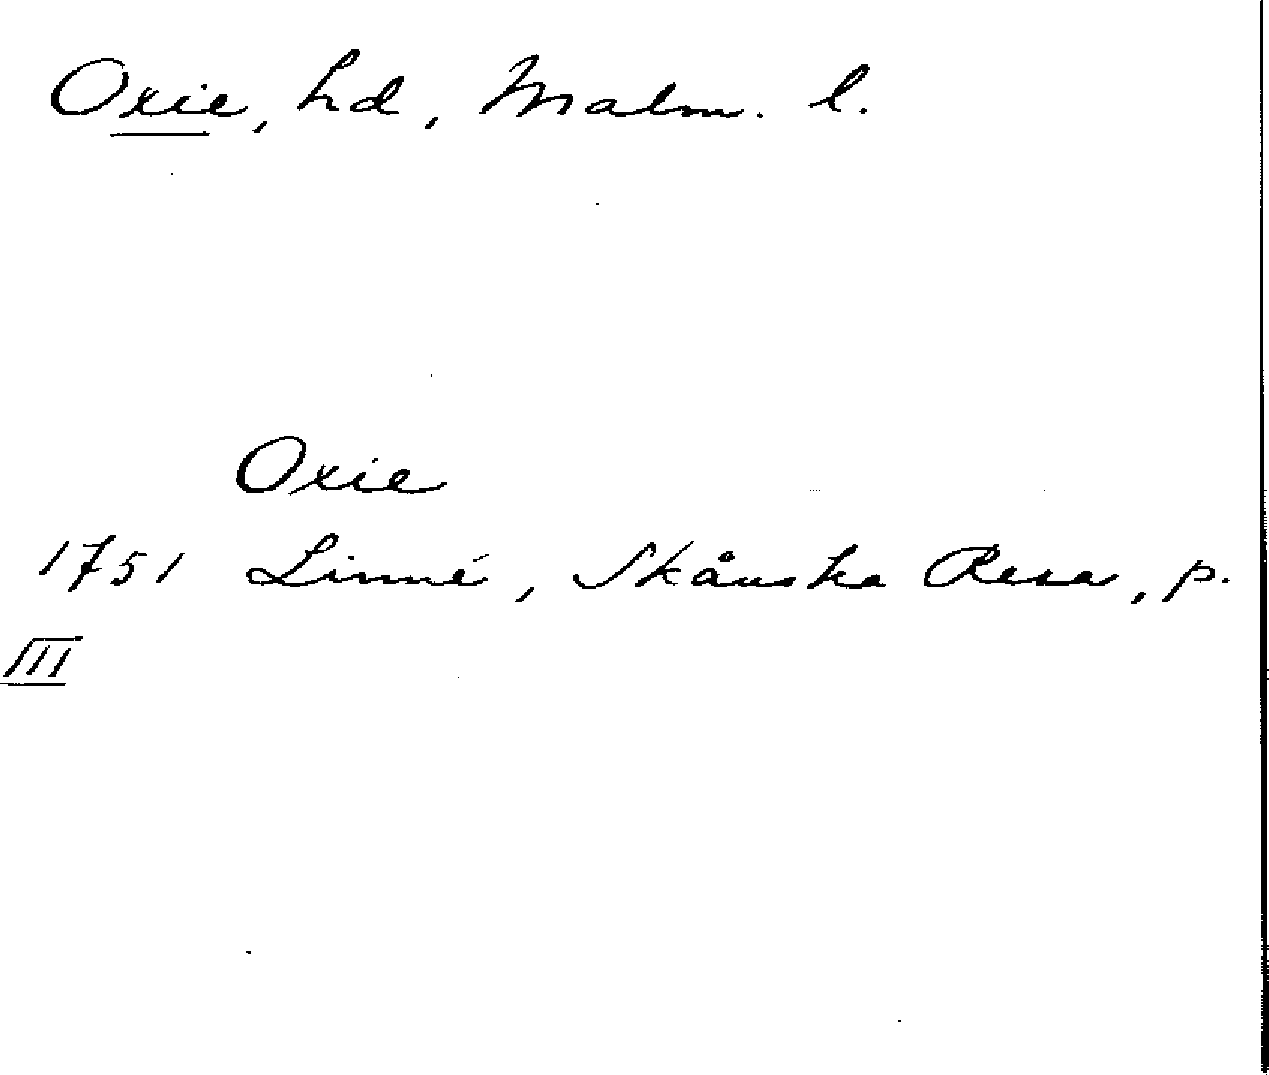 Oxie, hd, Malm. l.
Oxie
1751 Linné, Skånska Resa, p.
III